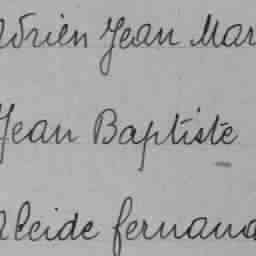 Adrien Jean Mar
Jean Baptiste
Alcide fernand